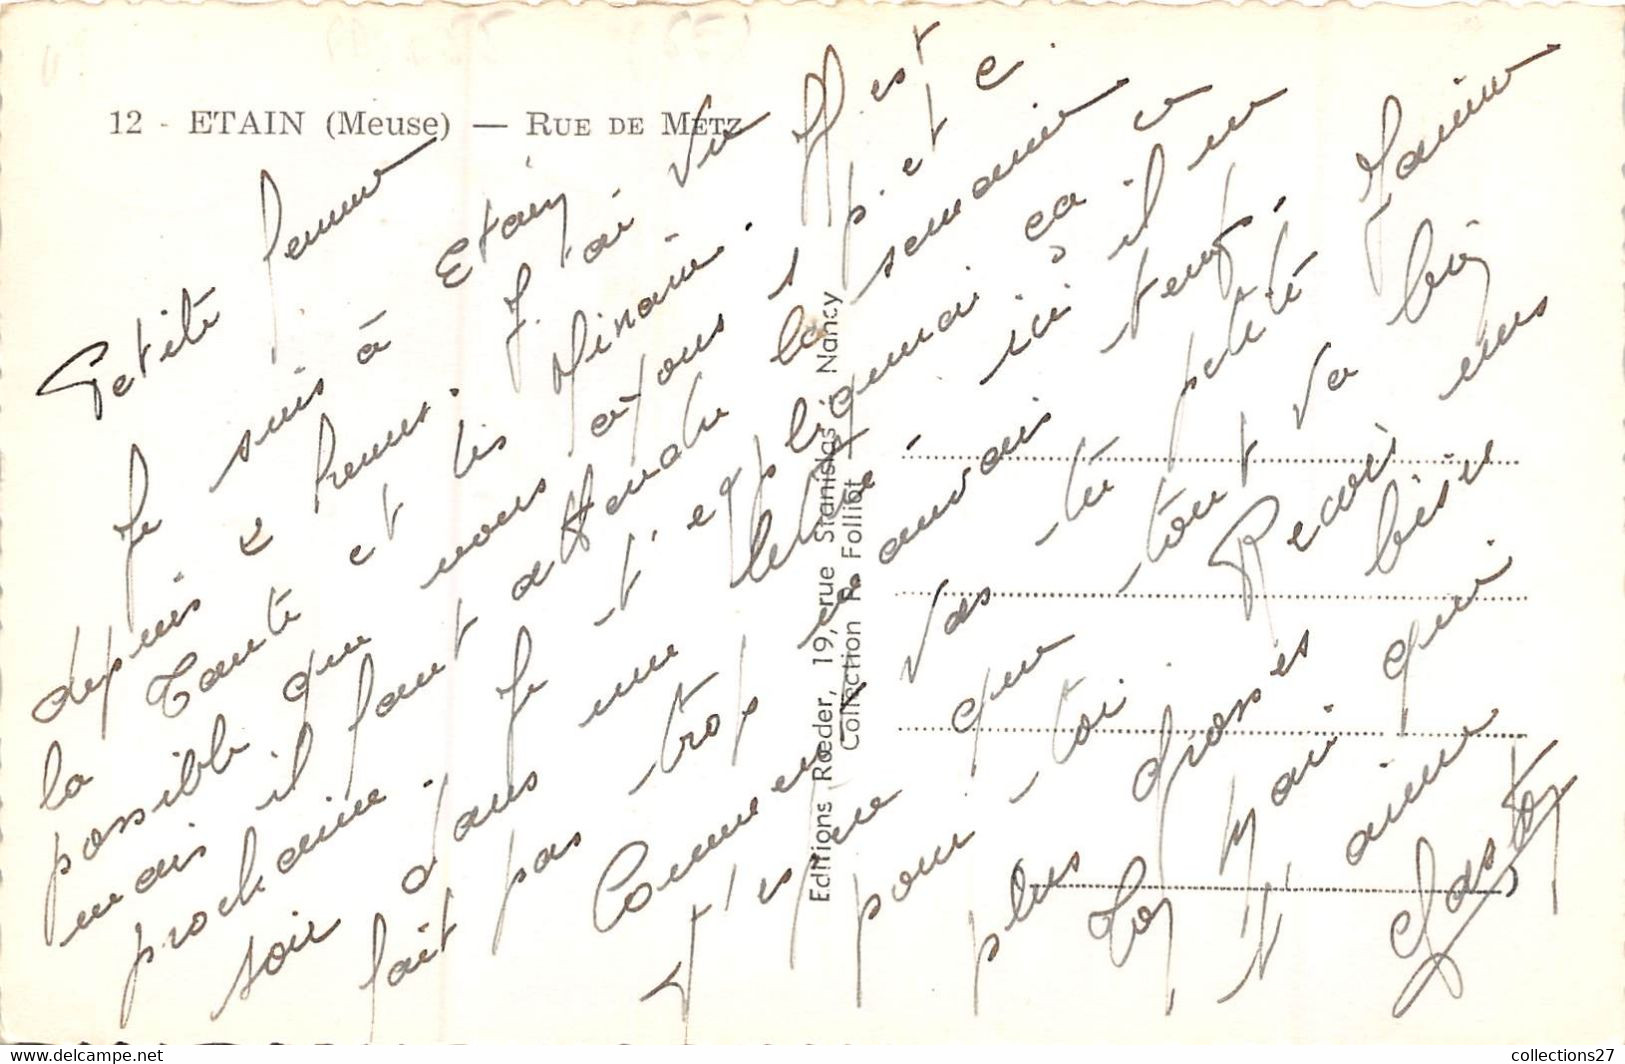 12 - ETAIN (Meuse) — RUE DE METZ
Petite femme
Je suis à Etain
depuis 2 heures. J'ai vu
la Tante et les . Il est
possible que nous ayons 1 p. et c.
mais il faut attendre la semaine
prochaine. Je t'expliquerai ça ce
soir dans une lettre. ici il ne
fait pas trop mauvais temps.
Comment vas tu petite Janine
J'espère que tout va bien
pour toi. Reçois mes
plus grosses bises
Ton mari qui
t'aime
Editions Rœder, 19, rue Stanislas, Nancy
Collection R. Folliot
collections27
www.delcampe.net